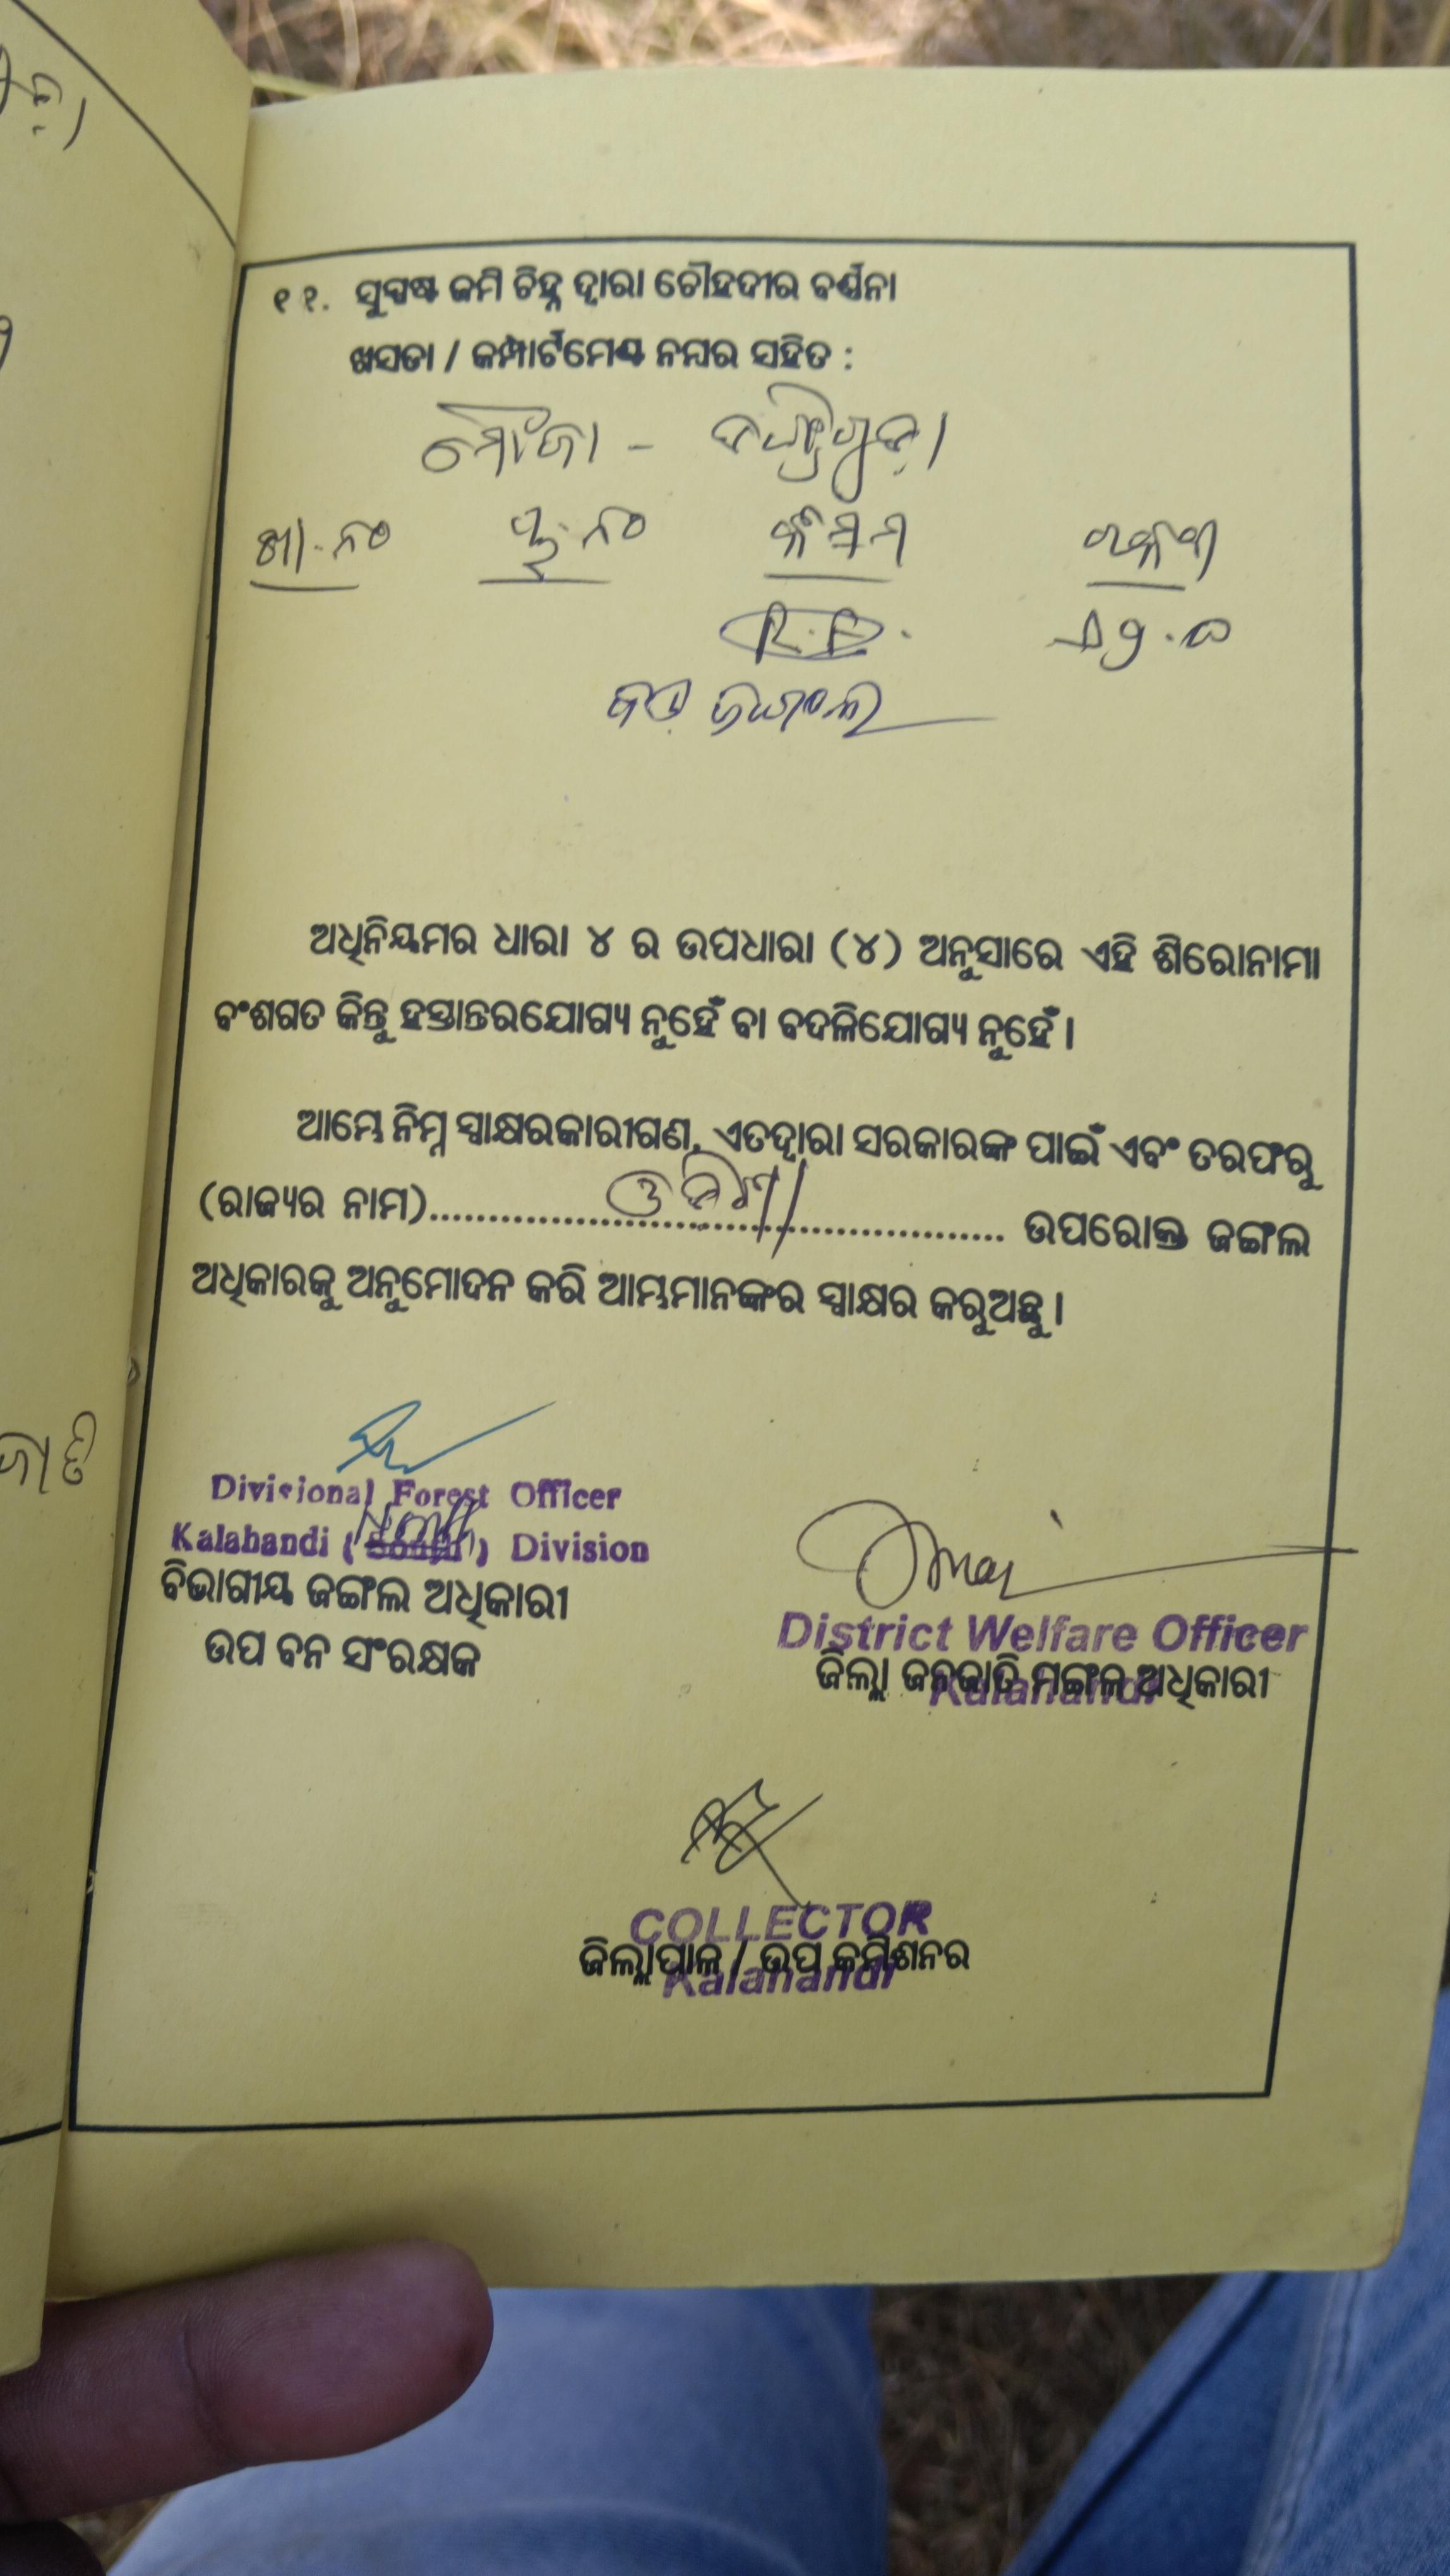 ୧୧. ସୁସ୍ପଷ୍ଟ ଜମି ଚିହ୍ନ ଦ୍ୱାରା ଚୌହଦୀର ବର୍ଣ୍ଣନା
ଖସଡା / କମ୍ପାର୍ଟମେଣ୍ଟ ନମ୍ବର ସହିତ :
ମୌଜା -
ଖା.ନଂ ପ୍ଲ.ନଂ କିସମ ରକବା
R.F.
ବଡ ଜଙ୍ଗଲ
ଅଧିନିୟମର ଧାରା ୪ ର ଉପଧାରା (୪) ଅନୁସାରେ ଏହି ଶିରୋନାମା
ବଂଶଗତ କିନ୍ତୁ ହସ୍ତାନ୍ତରଯୋଗ୍ୟ ନୁହେଁ ବା ବଦଳିଯୋଗ୍ୟ ନୁହେଁ ।
ଆମ୍ଭେ ନିମ୍ନ ସ୍ୱାକ୍ଷରକାରୀଗଣ, ଏତଦ୍ୱାରା ସରକାରଙ୍କ ପାଇଁ ଏବଂ ତରଫରୁ
(ରାଜ୍ୟର ନାମ) ଓଡିଶା ଉପରୋକ୍ତ ଜଙ୍ଗଲ
ଅଧିକାରକୁ ଅନୁମୋଦନ କରି ଆମ୍ଭମାନଙ୍କର ସ୍ୱାକ୍ଷର କରୁଅଛୁ ।
Divisional Forest Officer
Kalahandi (North) Division
ବିଭାଗୀୟ ଜଙ୍ଗଲ ଅଧିକାରୀ
ଉପ ବନ ସଂରକ୍ଷକ
District Welfare Officer
ଜିଲ୍ଲା ଜନଜାତି ମଙ୍ଗଳ ଅଧିକାରୀ
Kalahandi
COLLECTOR
ଜିଲ୍ଲାପାଳ / ଉପ କମିଶନର
Kalahandi